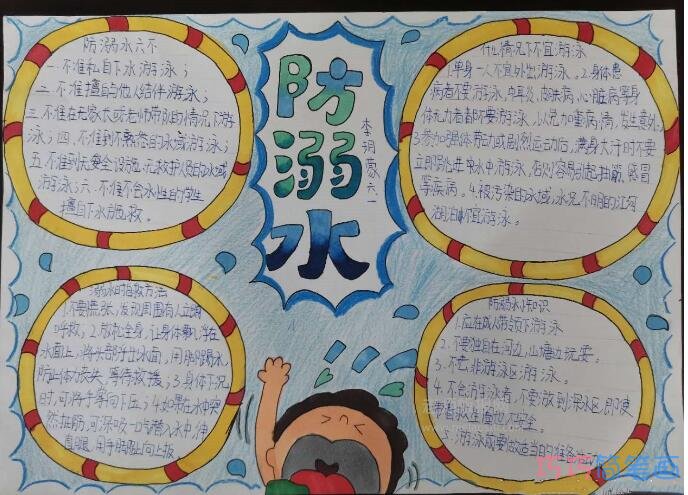 防溺水六不
一.不准私自下水游泳;
二.不准擅自与他人结伴游泳;
三.不准在无家长或老师带队的情况下游
泳;四.不准到不熟悉的水域游泳;
五.不准到无安全设施.无救护人员的水域
游泳;六.不准不会水性的学生
擅自下水施救。
防溺水
李玥蒙六一
什么情况下不宜游泳
1.单身一人不宜外出游泳,2.身体患
病者不要游泳,中耳炎,皮肤病,心脏病等身
体无力者都不要游泳,以免加重病情,发生意外,
3.参加强体劳动或剧烈运动后,满身大汗时不要
立即跳进水中游泳,否则容易引起抽筋,感冒
等疾病。4.被污染的水域,水况不明的江河
湖泊不宜游泳。
溺水的自救方法
1.不要慌张,发现周围有人立即
呼救;2.放松全身,让身体飘浮在
水面上,将头部浮出水面,用脚踢水,
防止体力丧失,等待救援;3.身体下沉
时,可将手掌向下压;4.如果在水中突
然抽筋,可深吸一口气潜入水中,伸
直腿,用手脚趾向上扳
防溺水小知识
1.应在成人带领下游泳
2.不要独自在河边,山塘边玩耍。
3.不去非游泳区游泳。
4.不会游泳者,不要游到深水区,即使
带着救生圈也不安全。
5.游泳前要做适当的准备